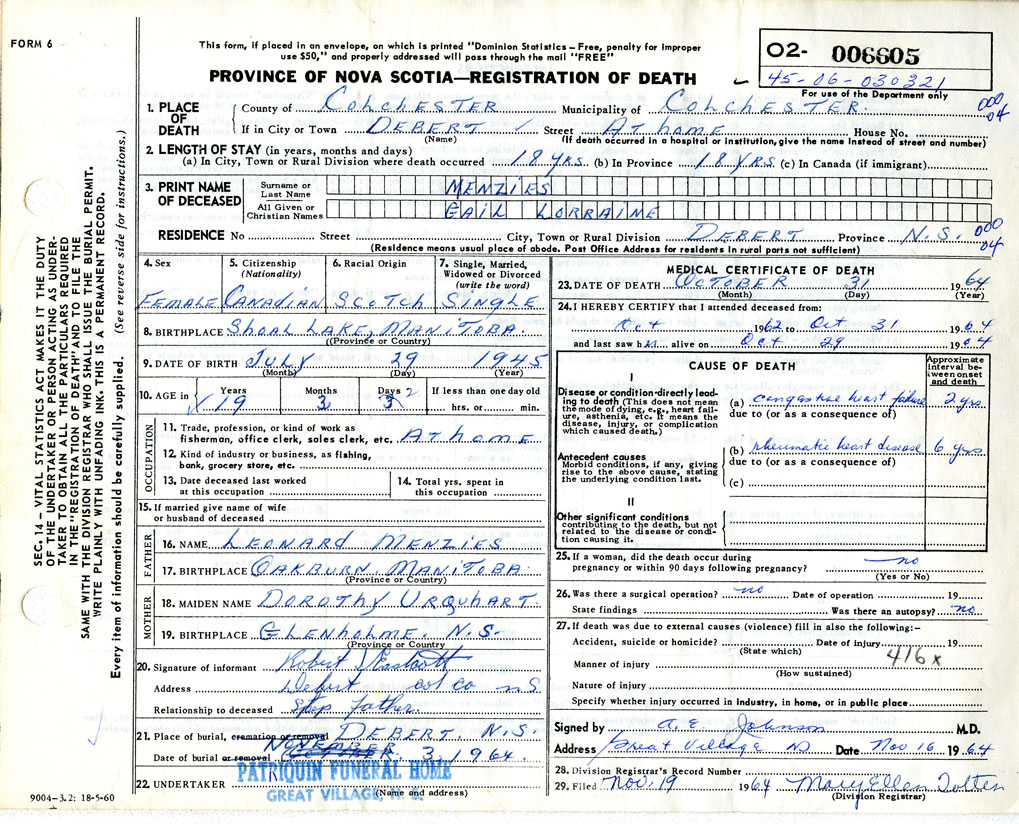 FORM 6
This form, if placed in an envelope, on which is printed "Dominion Statistics – Free, penalty for improper
use $50," and properly addressed will pass through the mail "FREE"
PROVINCE OF NOVA SCOTIA—REGISTRATION OF DEATH
02- 006605
45-06-030321
For use of the Department only
1. PLACE OF DEATH County of COLCHESTER Municipality of COLCHESTER. 000 04
If in City or Town DEBERT Street At home House No.
(Name) (If death occurred in a hospital or institution, give the name instead of street and number)
2. LENGTH OF STAY (in years, months and days)
(a) In City, Town or Rural Division where death occurred 18 YRS. (b) In Province 18 YRS (c) In Canada (if immigrant)
3. PRINT NAME OF DECEASED Surname or Last Name MENZIES
All Given or Christian Names GAIL LORRAINE
RESIDENCE No Street City, Town or Rural Division DEBERT Province N.S. 000 04
(Residence means usual place of abode. Post Office Address for residents in rural parts not sufficient)
4. Sex FEMALE
5. Citizenship (Nationality) CANADIAN
6. Racial Origin SCOTCH
7. Single, Married, Widowed or Divorced (write the word) SINGLE
8. BIRTHPLACE SHOAL LAKE, MANITOBA
(Province or Country)
9. DATE OF BIRTH JULY 29 1945
(Month) (Day) (Year)
10. AGE in Years 19 Months 3 Days 3 2 If less than one day old hrs. or min.
OCCUPATION
11. Trade, profession, or kind of work as
fisherman, office clerk, sales clerk, etc. At home
12. Kind of industry or business, as fishing,
bank, grocery store, etc.
13. Date deceased last worked
at this occupation
14. Total yrs. spent in
this occupation
15. If married give name of wife
or husband of deceased
FATHER
16. NAME LEONARD MENZIES
17. BIRTHPLACE OAKBURN MANITOBA.
(Province or Country)
MOTHER
18. MAIDEN NAME DOROTHY URQUHART.
19. BIRTHPLACE GLENHOLME. N.S.
(Province or Country)
20. Signature of informant Robert
Address Debert col co n S
Relationship to deceased step father.
21. Place of burial, cremation or removal DEBERT. N.S.
Date of burial or removal NOVEMBER 3, 1964.
22. UNDERTAKER PATRIQUIN FUNERAL HOME
GREAT VILLAGE, N. S.
(Name and address)
9004–3.2: 18-5-60
MEDICAL CERTIFICATE OF DEATH
23. DATE OF DEATH OCTOBER 31 1964
(Month) (Day) (Year)
24. I HEREBY CERTIFY that I attended deceased from:
Oct 1962 to Oct 31 1964
and last saw her alive on Oct 29 1964
CAUSE OF DEATH
Approximate interval between onset and death
I
Disease or condition directly leading to death (This does not mean the mode of dying, e.g., heart failure, asthenia, etc. It means the disease, injury, or complication which caused death.)
(a) congestive heart failure 2 yrs.
due to (or as a consequence of)
Antecedent causes
Morbid conditions, if any, giving rise to the above cause, stating the underlying condition last.
(b) rheumatic heart disease 6 yrs
due to (or as a consequence of)
(c)
II
Other significant conditions
contributing to the death, but not related to the disease or condition causing it.
25. If a woman, did the death occur during
pregnancy or within 90 days following pregnancy? no
(Yes or No)
26. Was there a surgical operation? no Date of operation 19
State findings Was there an autopsy? no
27. If death was due to external causes (violence) fill in also the following:–
Accident, suicide or homicide? Date of injury 19
(State which) 416x
Manner of injury
(How sustained)
Nature of injury
Specify whether injury occurred in industry, in home, or in public place
Signed by A. E. Johnson M.D.
Address Great Village NS Date Nov 16 1964
28. Division Registrar's Record Number
29. Filed Nov. 19 1964 Mary Ellen
(Division Registrar)
SEC. 14 – VITAL STATISTICS ACT MAKES IT THE DUTY
OF THE UNDERTAKER OR PERSON ACTING AS UNDER-
TAKER TO OBTAIN ALL THE PARTICULARS REQUIRED
IN THE "REGISTRATION OF DEATH" AND TO FILE THE
SAME WITH THE DIVISION REGISTRAR WHO SHALL ISSUE THE BURIAL PERMIT.
WRITE PLAINLY WITH UNFADING INK. THIS IS A PERMANENT RECORD.
Every item of information should be carefully supplied. (See reverse side for instructions.)